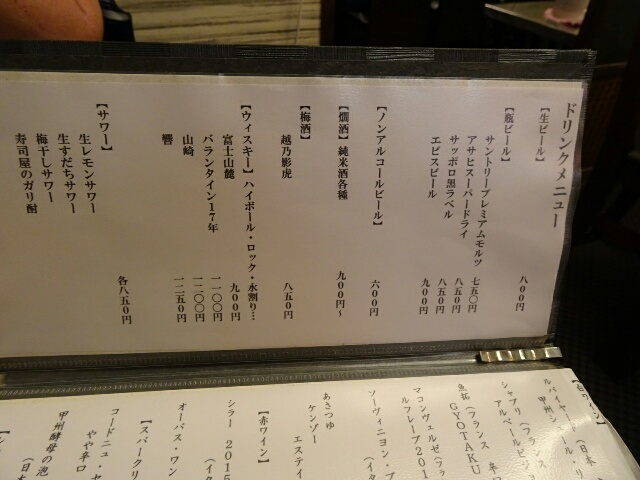 ドリンクメニュー
【生ビール】 八〇〇円
【瓶ビール】
サントリープレミアムモルツ 七五〇円
アサヒスーパードライ 八五〇円
サッポロ黒ラベル 八五〇円
エビスビール 九〇〇円
【ノンアルコールビール】 六〇〇円
【燗酒】純米酒各種 九〇〇円～
【梅酒】
越乃影虎 八五〇円
【ウィスキー】ハイボール・ロック・水割り…
富士山麓 九〇〇円
バランタイン17年 一一〇〇円
山崎 一二〇〇円
響 一二五〇円
【サワー】 各八五〇円
生レモンサワー
生すだちサワー
梅干しサワー
寿司屋のガリ酎
【白ワイン】
ルバイヤード（日本
甲州シュール・リ
シャブリ（フランス
アルベールビジョ
魚拓（フランス 辛口
GYOTAKU
マコンヴェルゼ（フラ
ルフレーブ201
ソーヴィニヨン・ブ
（イタ
あさつゆ
ケンゾー エステイ
【赤ワイン】
シラー 2015
（イタ
オーパス・ワン
【スパークリ
コードニュ・セ
やや辛口
甲州酵母の泡
（日本